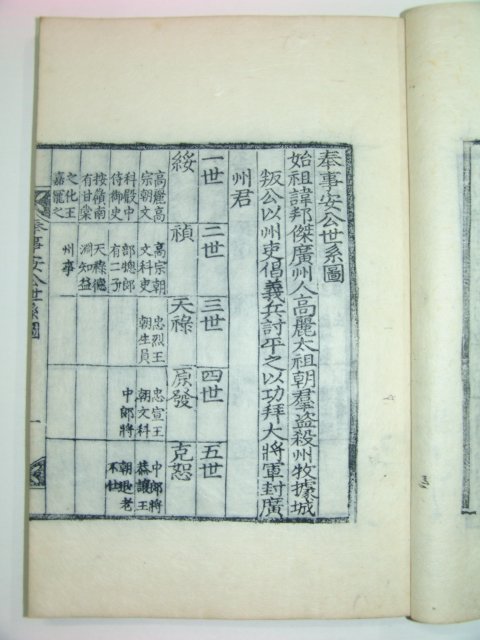 奉事安公世系圖
始祖諱邦傑廣州人高麗太祖朝羣盜殺州牧據城
叛公以州吏倡義兵討平之以功拜大將軍封廣
州君
一世
二世
三世
四世
五世
綏
禎
天祿
原發
克恕
高麗高
宗朝文
科殿中
侍御史
按嶺南
有甘棠
文化王
嘉罷之
高宗朝
文科吏
部總郎
有二子
天祿德
淵知益
州事
忠烈王
朝生員
忠宣王
朝文科
中郎將
中郎將
恭讓王
朝退老
不仕
奉事安公世系圖
一